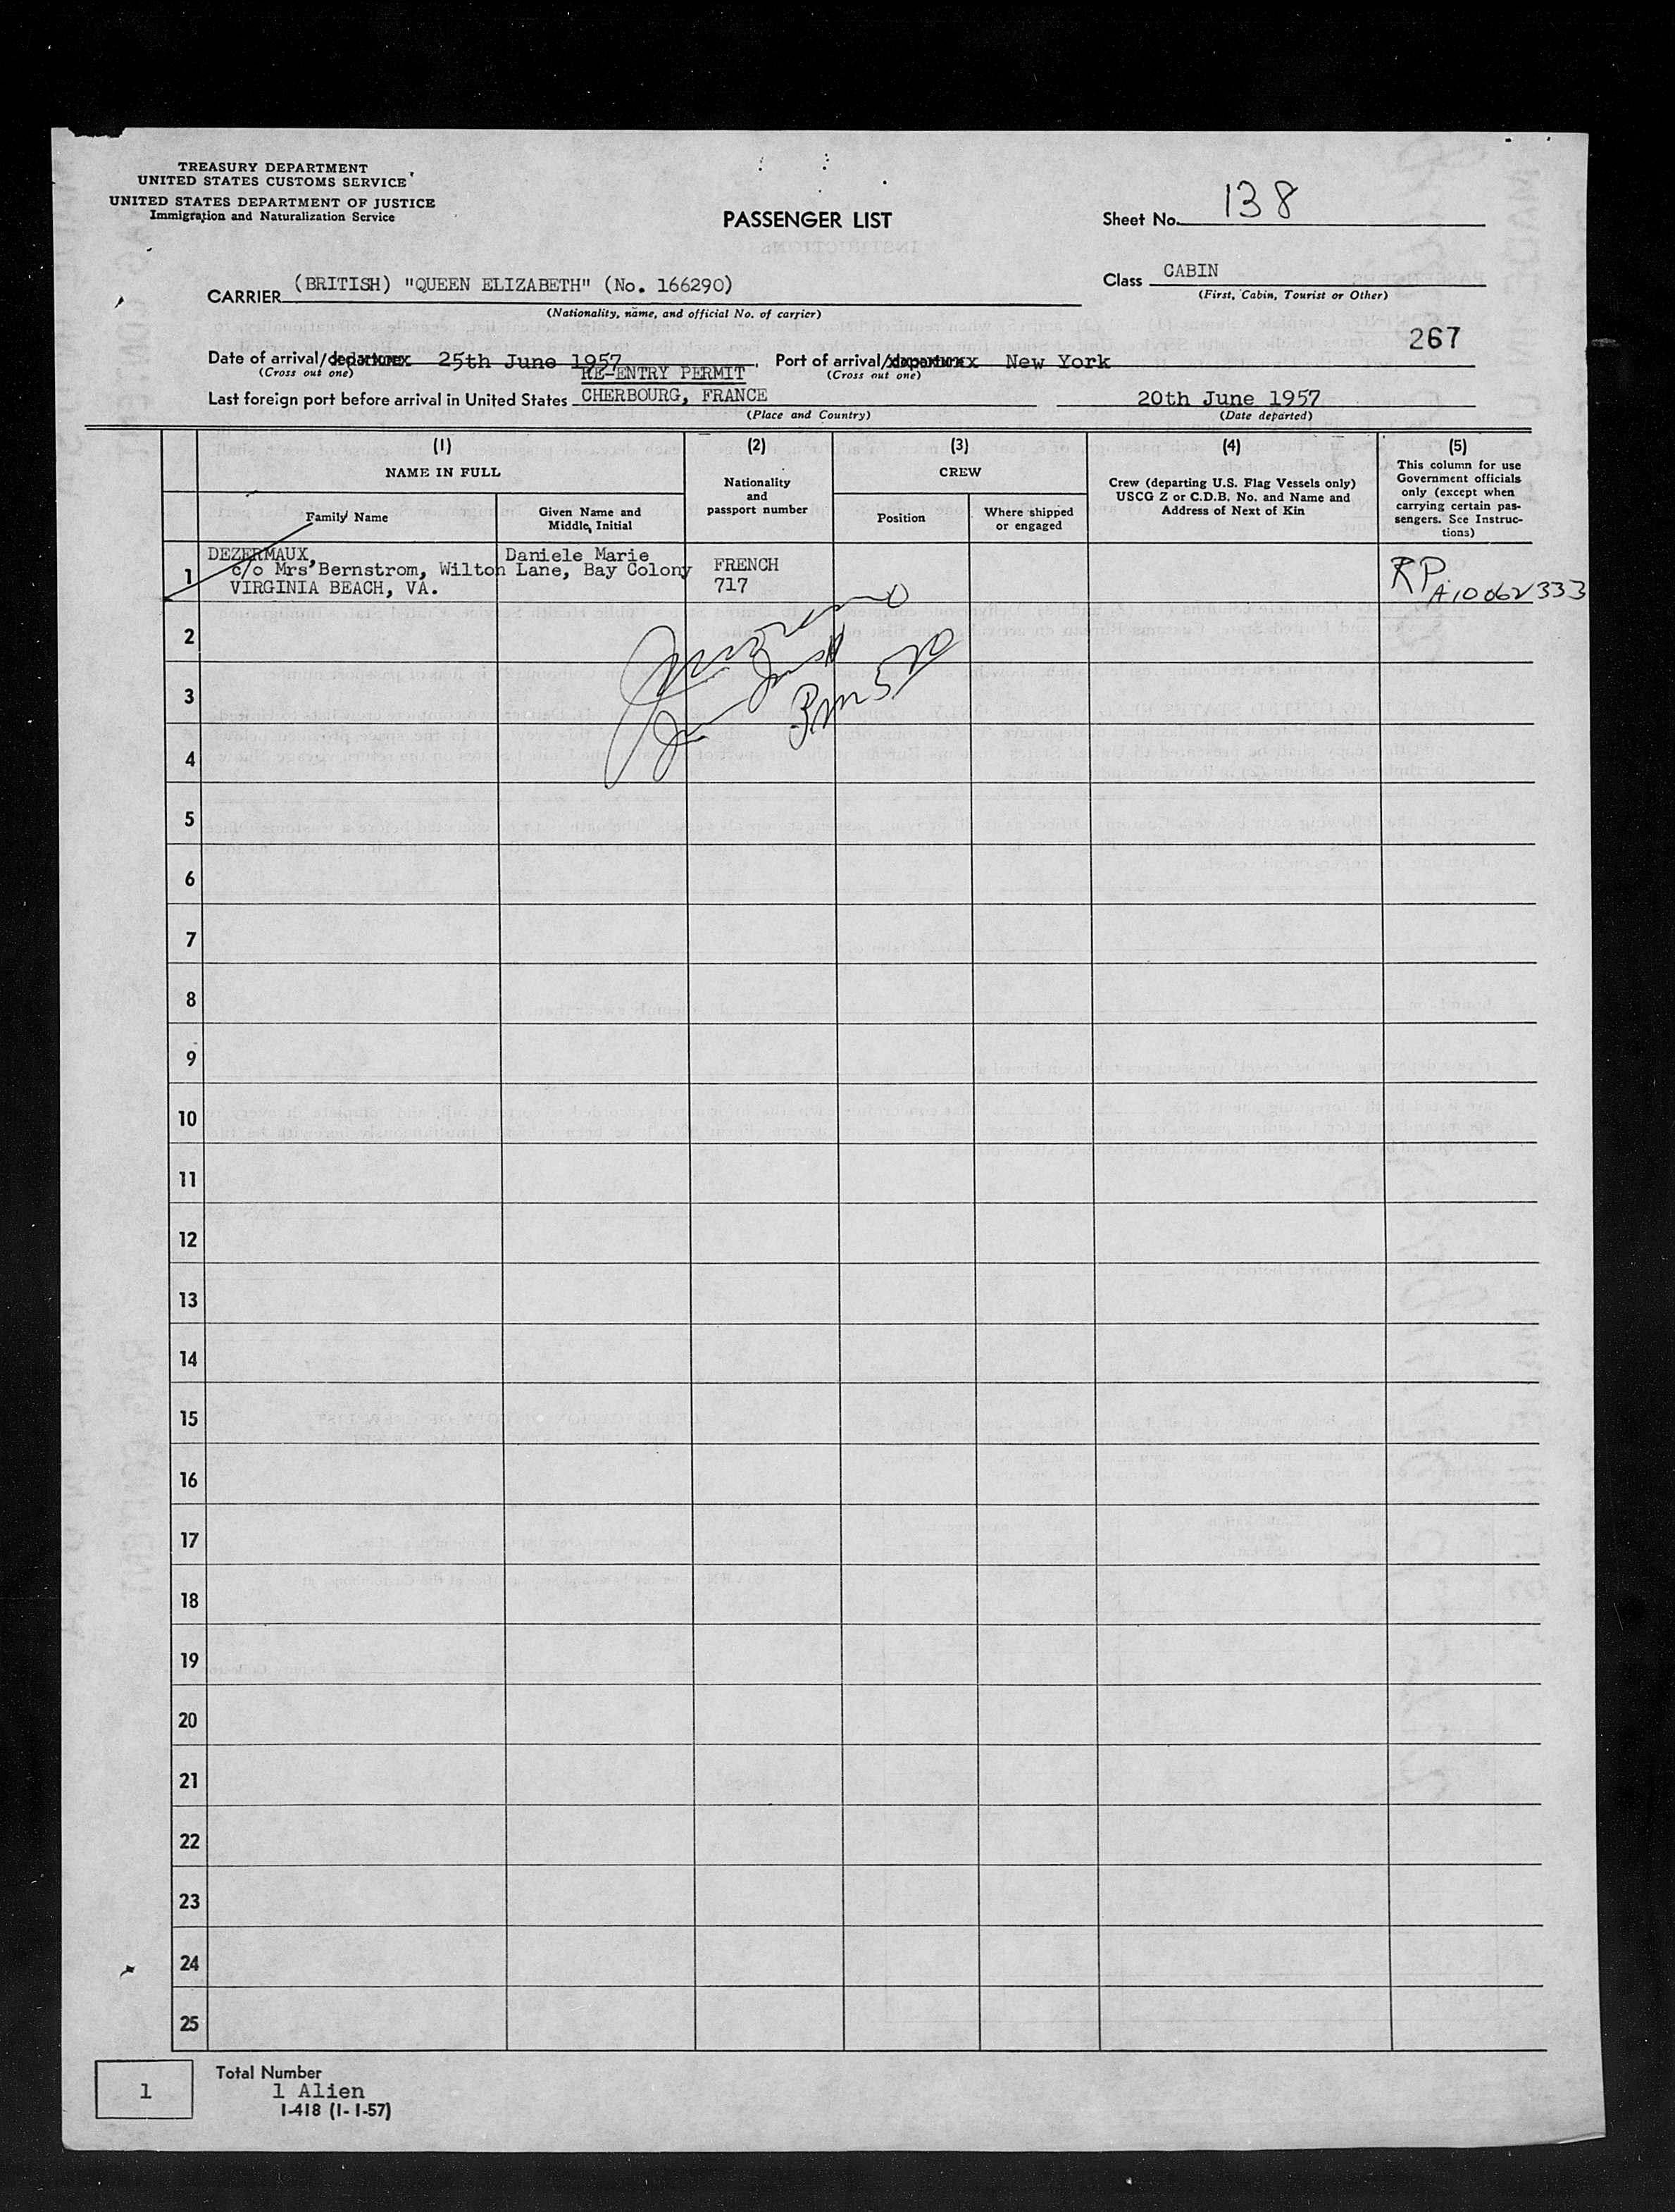 TREASURY DEPARTMENT
UNITED STATES CUSTOMS SERVICE
UNITED STATES DEPARTMENT OF JUSTICE
Immigration and Naturalization Service
PASSENGER LIST
Sheet No. 138
CARRIER (BRITISH) "QUEEN ELIZABETH" (No. 166290)
(Nationality, name, and official No. of carrier)
Class CABIN
(First, Cabin, Tourist or Other)
267
Date of arrival/departure 25th June 1957. Port of arrival/departure New York
(Cross out one) (Cross out one)
RE-ENTRY PERMIT
Last foreign port before arrival in United States CHERBOURG, FRANCE 20th June 1957
(Place and Country) (Date departed)
(1) (2) (3) (4) (5)
NAME IN FULL
Family Name
Given Name and Middle Initial
Nationality and passport number
CREW
Position
Where shipped or engaged
Crew (departing U.S. Flag Vessels only)
USCG Z or C.D.B. No. and Name and
Address of Next of Kin
This column for use
Government officials
only (except when
carrying certain pas-
sengers. See Instruc-
tions)
1 DEZERMAUX, Daniele Marie
c/o Mrs Bernstrom, Wilton Lane, Bay Colony FRENCH
VIRGINIA BEACH, VA. 717
RP A10062333
2
3
4
5
6
7
8
9
10
11
12
13
14
15
16
17
18
19
20
21
22
23
24
25
1
Total Number
1 Alien
I-418 (1-1-57)